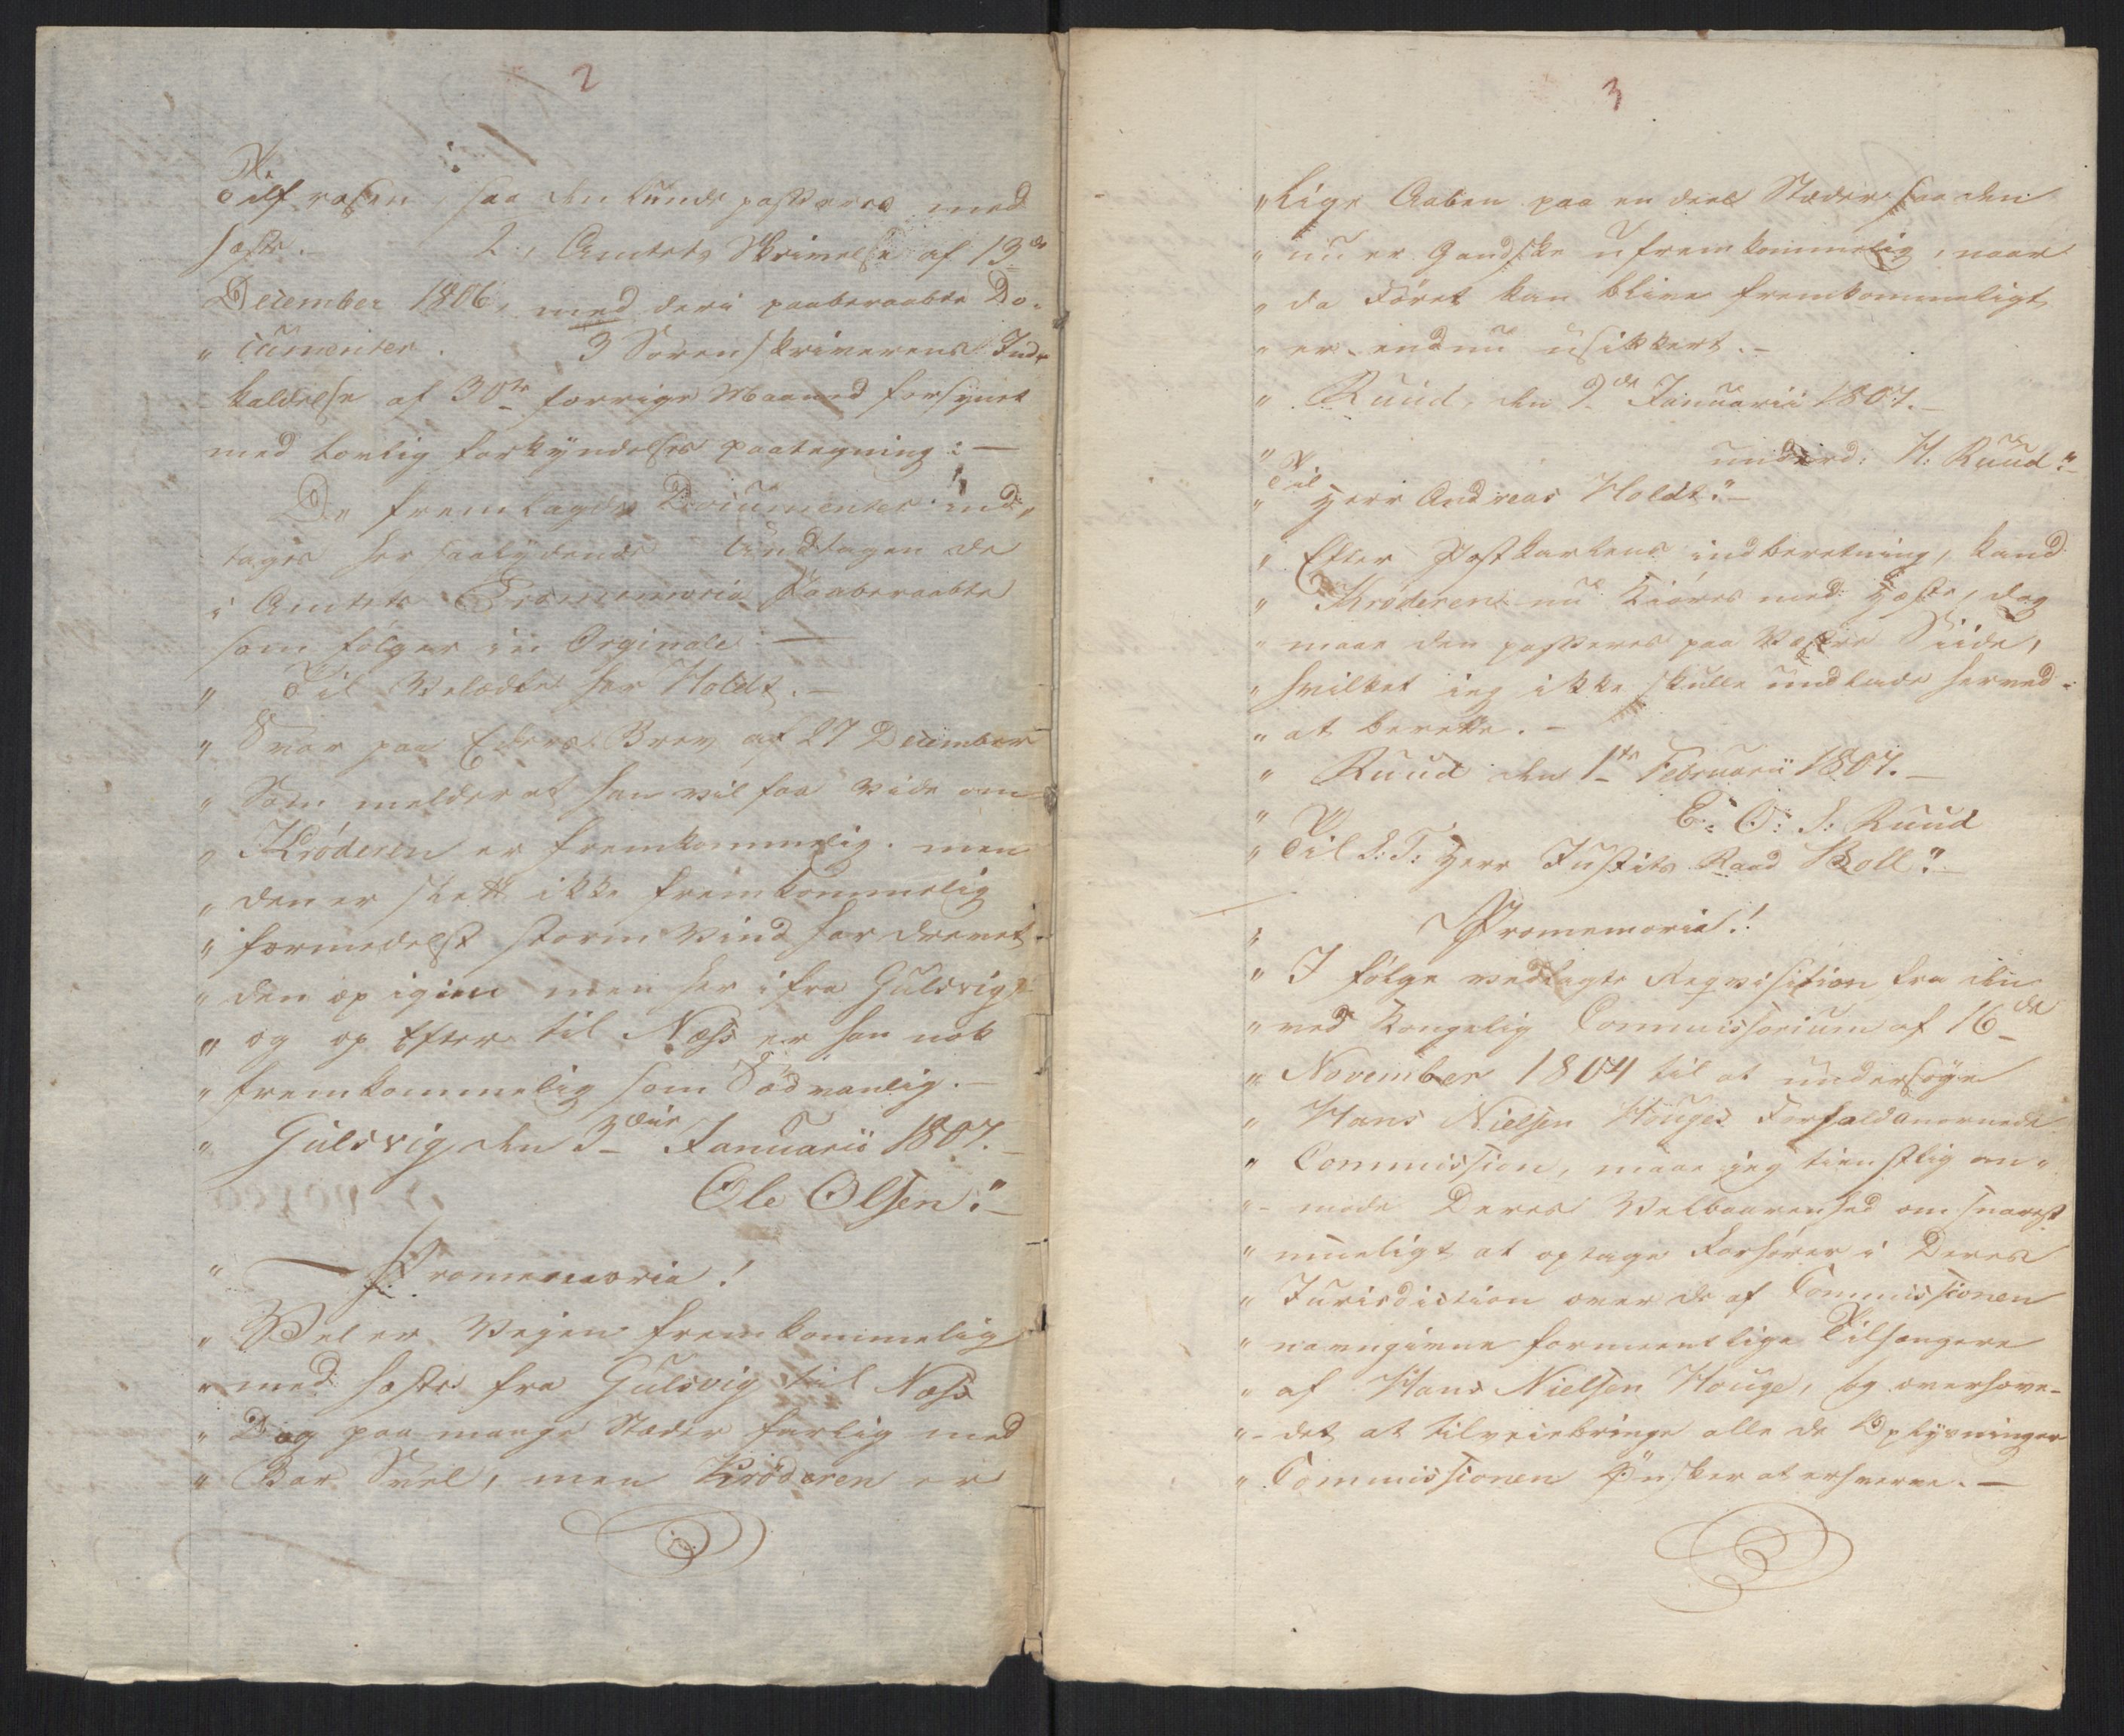 2
Tilfrosen, saa den kunde passeres med
heste. 2, Amtets Skrivelse af 13de
December 1806, med deri paaberaabte Do-
" cumenter. 3 Sorenskriverens Ind-
kaldelse af 30te forrige Maaned forsynet
med lovlig forkyndelses paategning: —
De fremlagde Documenter ind-
tages her saalydende Undtagen de
i Amtets Promemoria Paaberaabte
som følger in Orginale. —
" Til Velædle Hr Holdt. —
" Svar paa Eders Brev af 27 December
" Som melder at han vil faa vide om
" Krøderen er fremkommelig. men
" den er slett ikke fremkommelig
" formedelst storm Vind har drevet
" den op igien men her ifra Gulsvig
" og op efter til Næss er han nok
" fremkommelig som Sædvanlig. —
" Gulsvig den 3die Januarii 1807. —
Ole Olsen." —
" — Promemoria!
" Vel er Vejen fremkommelig
" med heste fra Gulsvig til Næss
" Dog paa mange Stæder farlig med
" Bar Svel, men Krøderen er
3
" lige Aaben paa en deel Stæder saa den
" nu er Gandske ufremkommelig, naar
" da Føret kan blive fremkommeligt
" er endnu usikkert. —
" Ruud, den 9de Januarii 1807. —
" underd: H: Ruud." —
" Til Herr Andreas Holdt." —
" Efter Postkarlens indberetning, kand
" Krøderen nu kiøres med heste, dog
" maae den passeres paa Vestre Siide,
" hvilket ieg ikke skulle undlade herved
" at berette. —
" Ruud den 1te Februarii 1807. —
" E: O: S: Ruud
" Til S: T: Herr Justits Raad Boll." —
" Promemoria!
" I følge vedlagte Reqvisition fra den
" ved Kongelig Commissorium af 16de
" November 1804 til at undersøge
" Hans Nielsen Houges Forhold anornede
" Commission, maae jeg tienstlig an-
" - mode Deres Velbaarenhed om snarest
" mueligt at optage Forhører i Deres
" Jurisdiction over de af Commissionen
" navngivne formeentlige Tilhængere
" af Hans Nielsen Houge, og overhove-
" - det at tilveiebringe alle de Oplysninger
" Commissionen Ønsker at erhverve. —